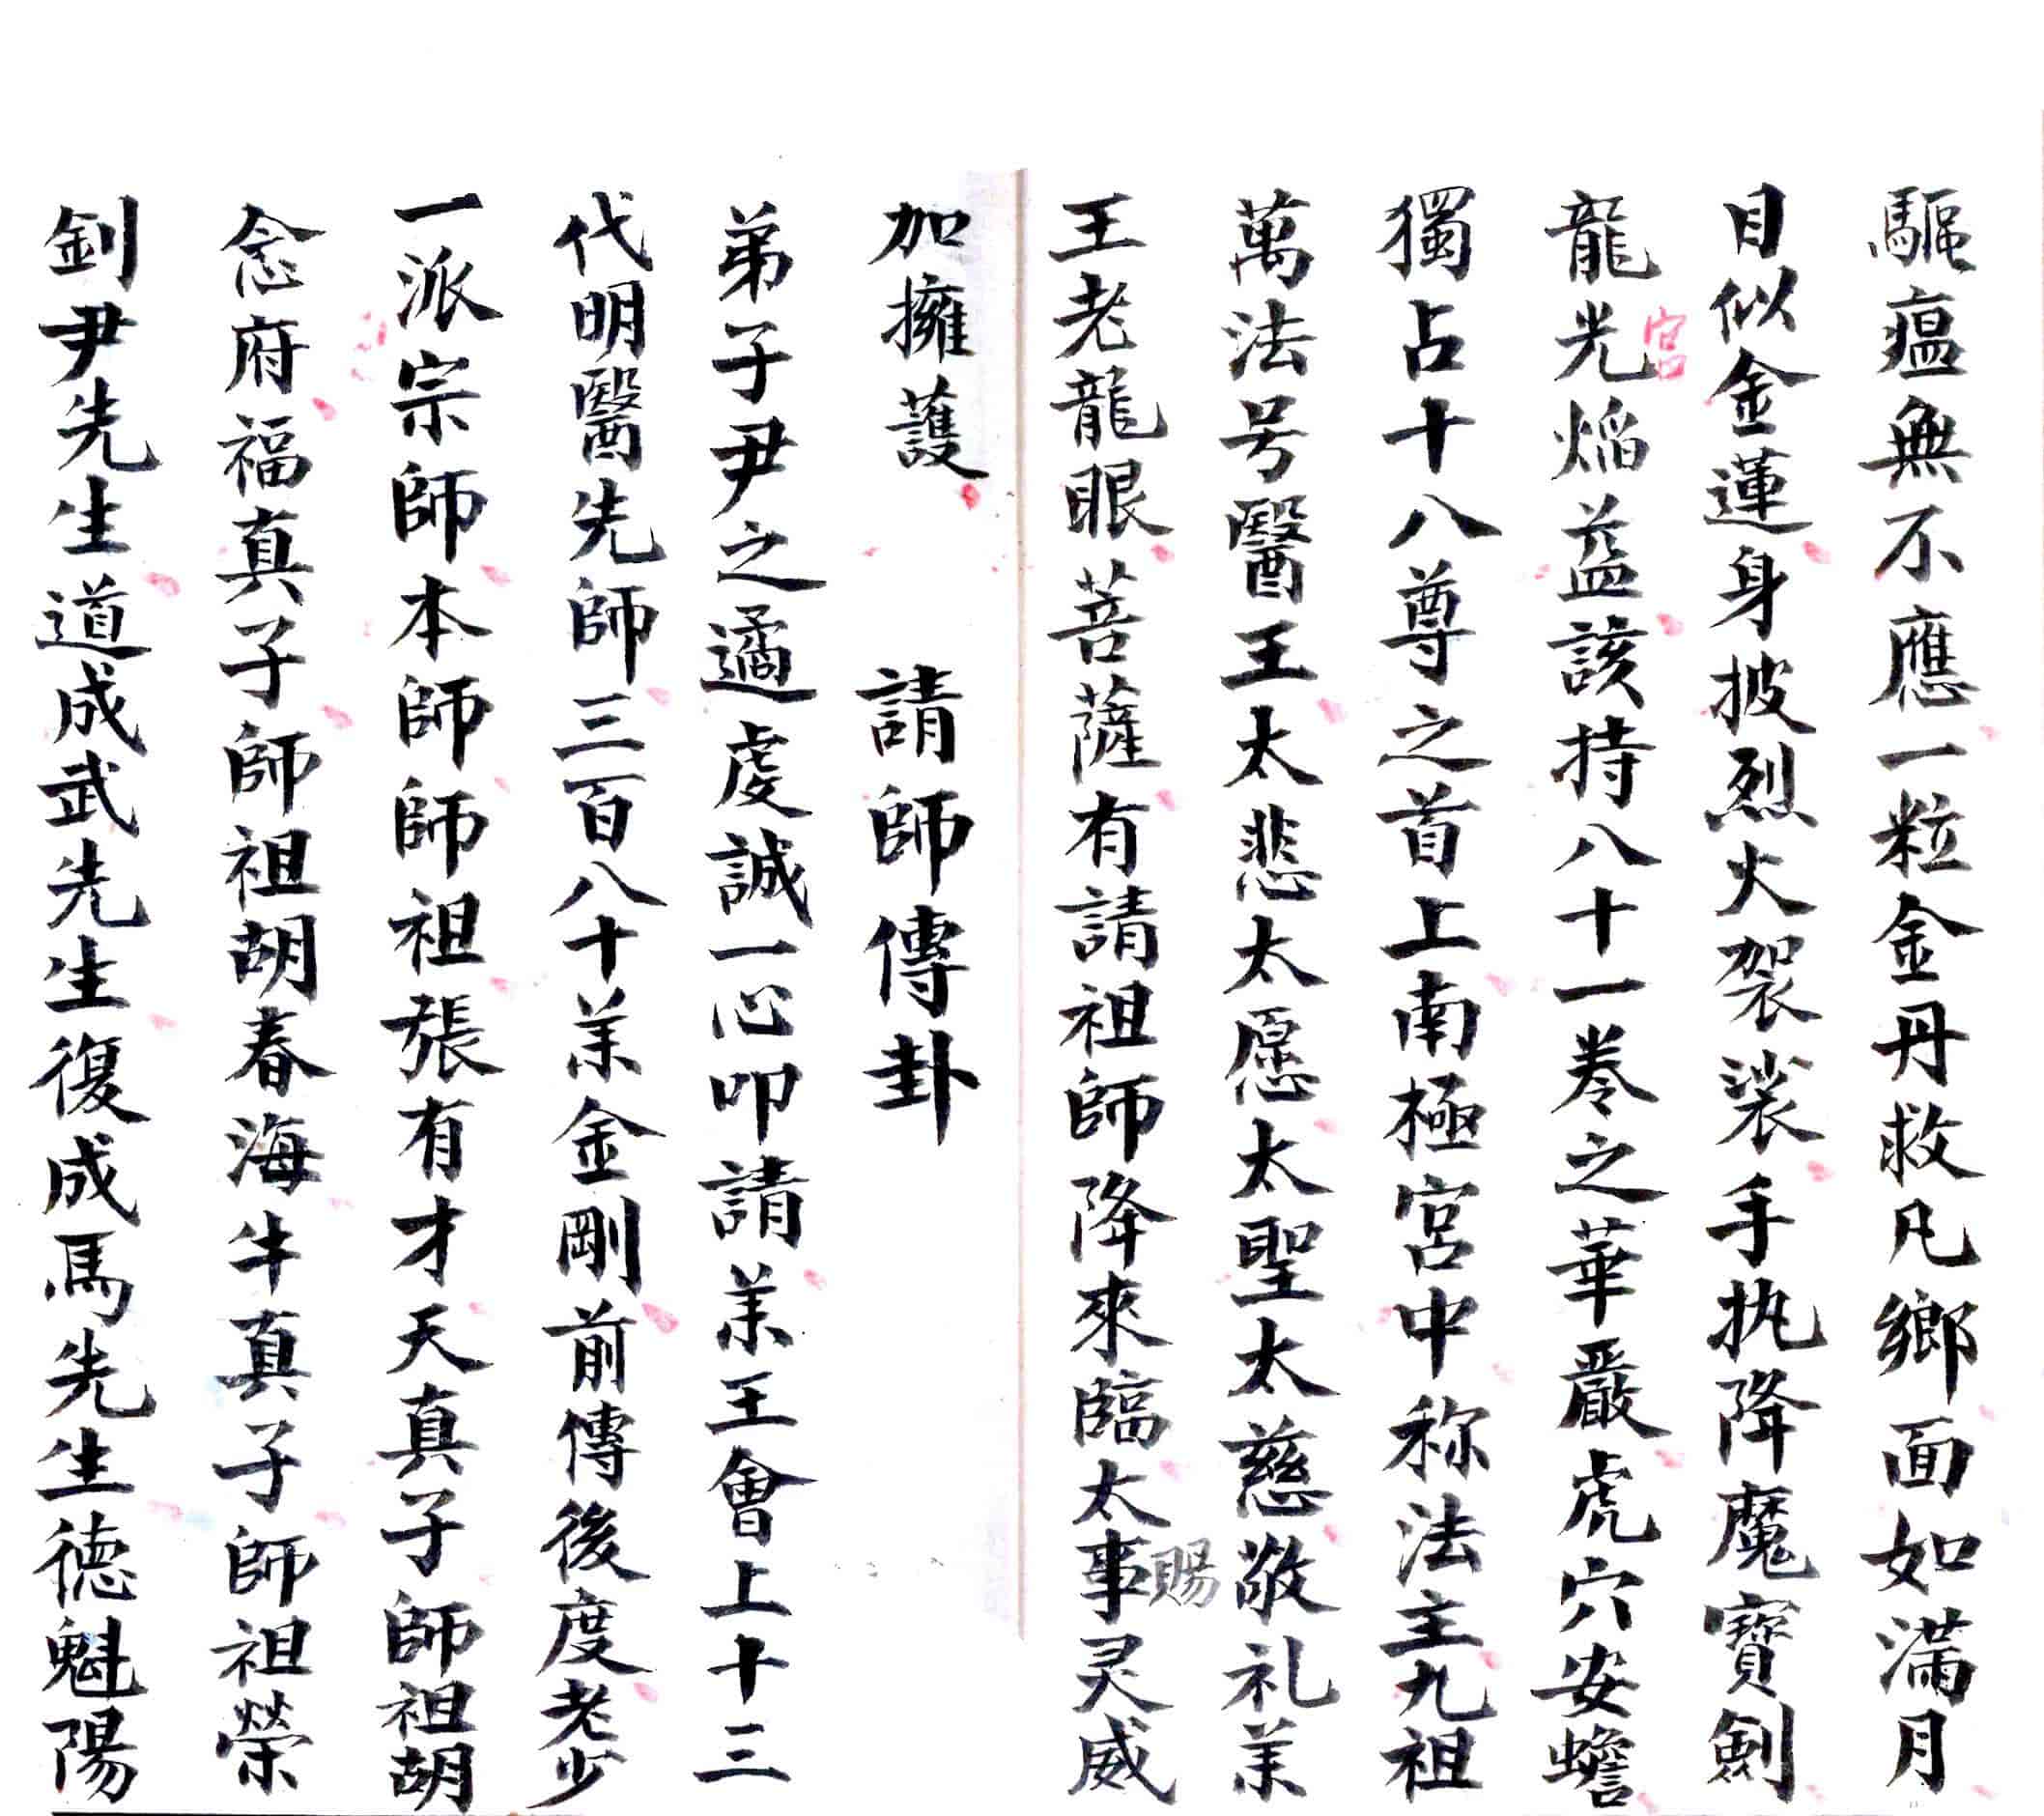 驅瘟無不應一粒金丹救凡鄉面如滿月
目似金蓮身披烈火袈裟手执降魔寶劍
龍光焔益該持八十一卷之華嚴虎穴安蟾
宮
獨占十八尊之首上南極宮中称法主九祖
萬法号醫王太悲太愿太聖太慈敬礼羙
王老龍眼菩薩有請祖師降來臨太事灵威
賜
加擁護　請師傳卦
弟子尹之遹虔誠一心叩請羙王會上十三
代明醫先師三百八十羙金剛前傳後度老少
一派宗師本師師祖張有才天真子師祖胡
念府福真子師祖胡春海牛真子師祖榮
釗尹先生道成武先生復成馬先生德魁陽